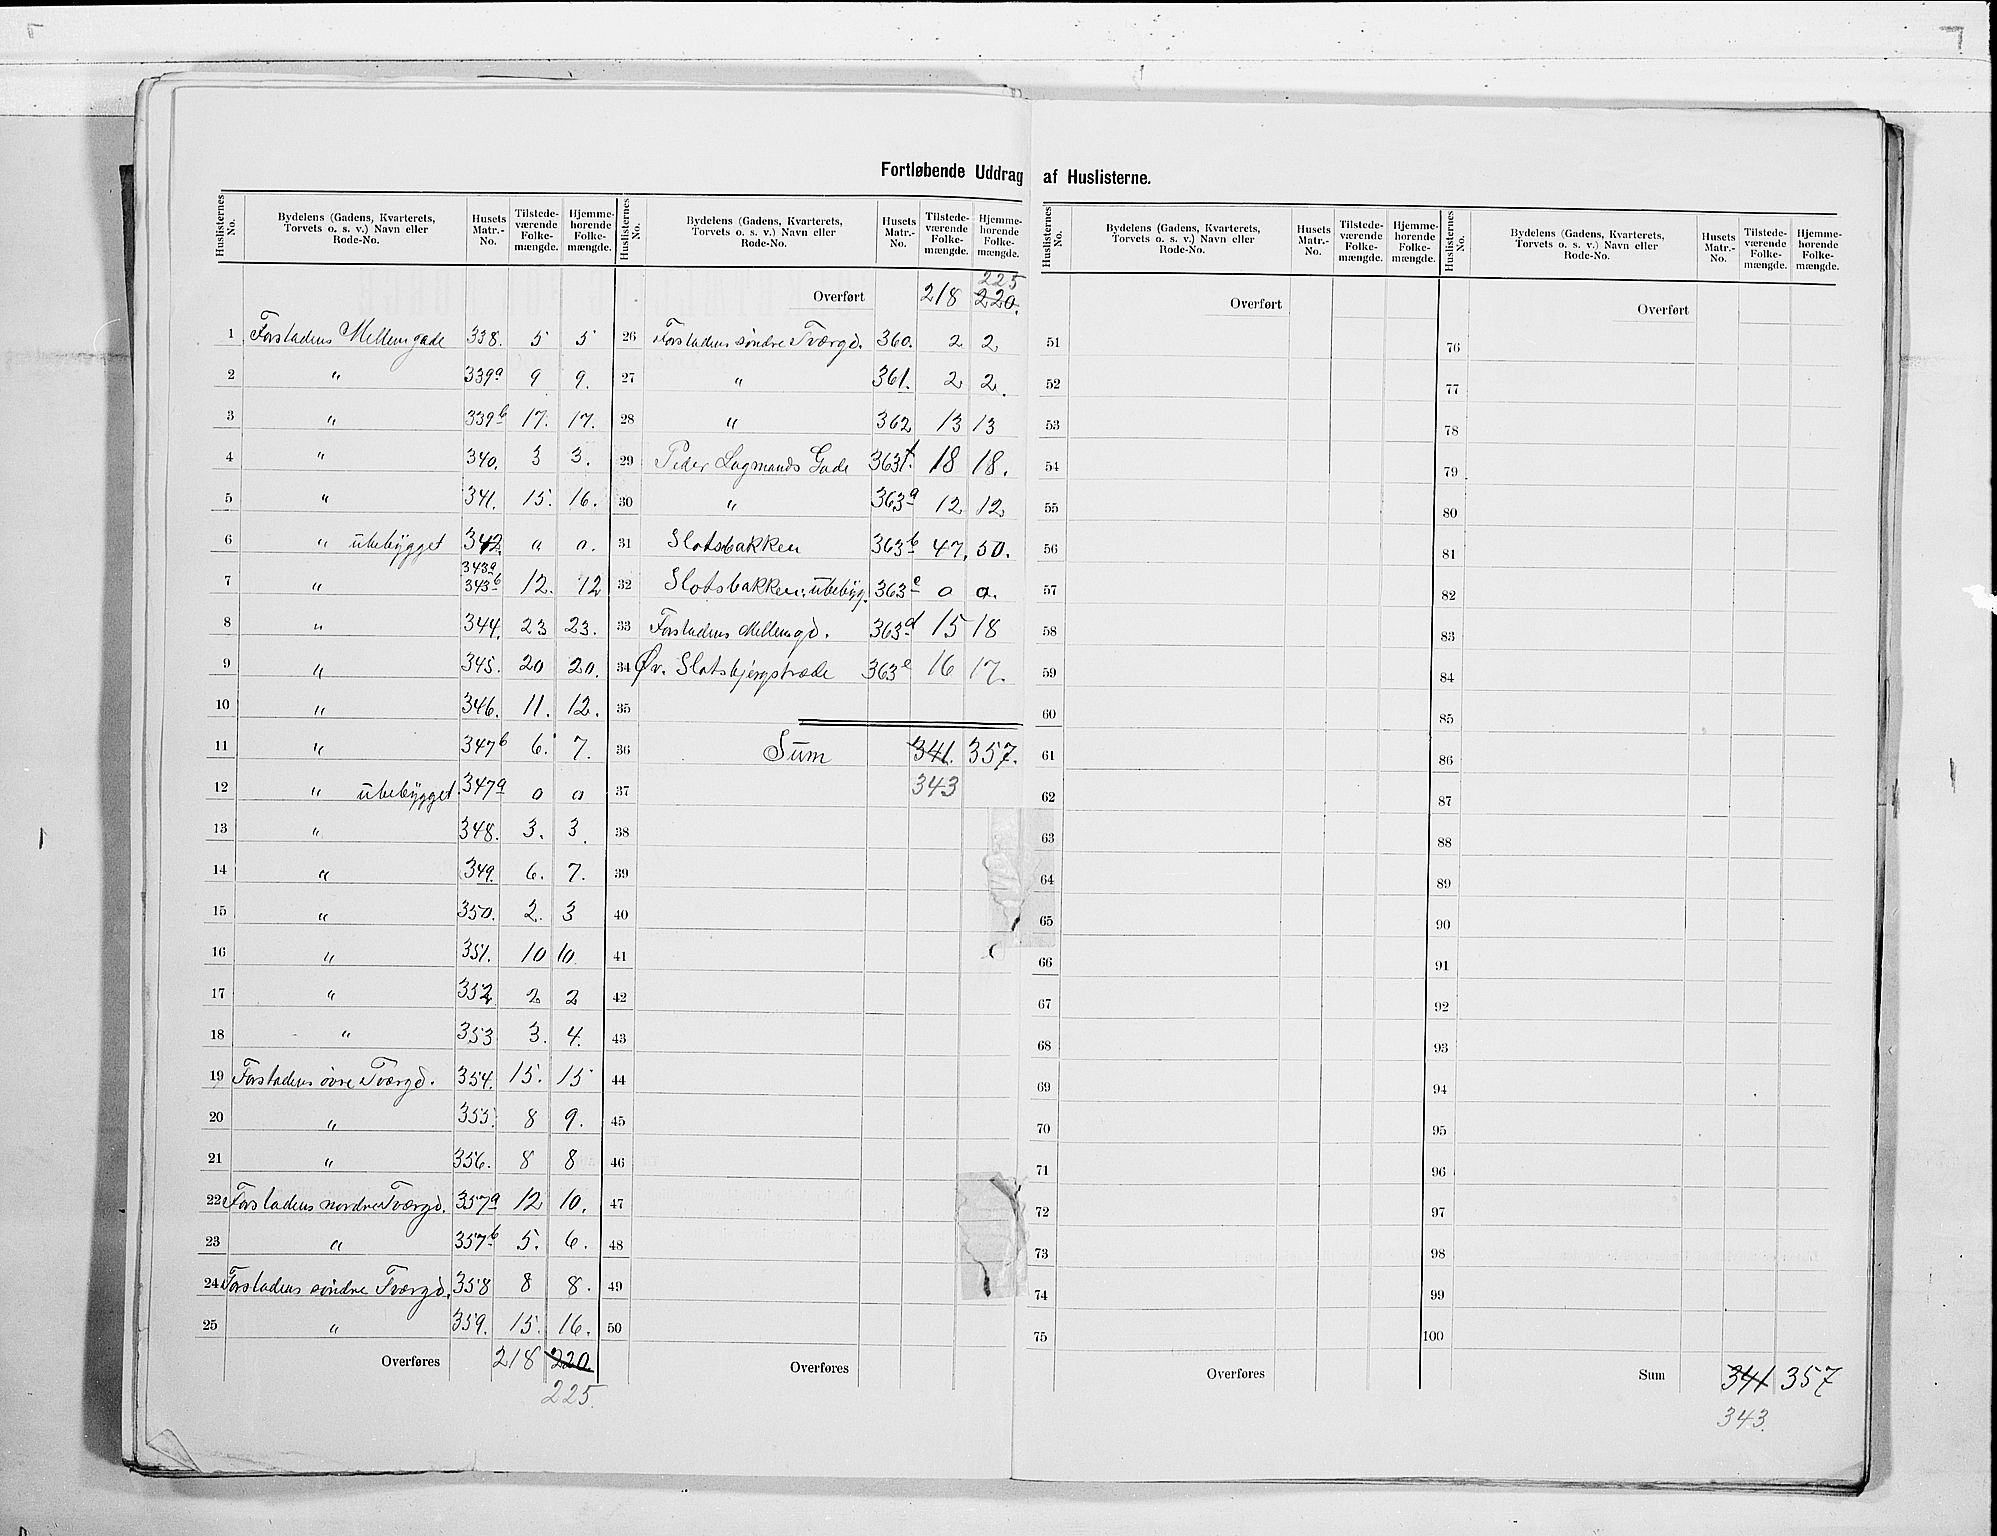 Fortløbende Uddrag af Huslisterne.
Huslisternes No. Bydelens (Gadens, Kvarterets, Torvets o. s. v.) Navn eller Rode-No. Husets Matr.-No. Tilstede-værende Folke-mængde. Hjemme-hørende Folke-mængde.
1 Forstadens Mellemgade 338. 5 5
2 " 339a 9 9.
3 " 339b 17. 17.
4 " 340. 3 3.
5 " 341. 15. 16.
6 " ubebygget 342. 0 0.
7 " 343a 343b 12. 12
8 " 344. 23 23.
9 " 345. 20 20.
10 " 346. 11. 12.
11 " 347b 6. 7.
12 " ubebygget. 347a 0 0
13 " 348. 3. 3.
14 " 349. 6. 7.
15 " 350. 2. 3
16 " 351. 10 10
17 " 352 2 2
18 " 353 3. 4.
19 Forstadens øvre Tværgd. 354. 15. 15
20 " 355. 8 9.
21 " 356. 8 8
22 Forstadens nordre Tværgd. 357a 12 10.
23 " 357b 5. 6.
24 Forstadens søndre Tværgd. 358 8 8.
25 " 359. 15. 16.
Overføres 218 220.
225.
Huslisternes No. Bydelens (Gadens, Kvarterets, Torvets o. s. v.) Navn eller Rode-No. Husets Matr.-No. Tilstede-værende Folke-mængde. Hjemme-hørende Folke-mængde.
225
Overført 218 220.
26 Forstadens søndre Tværgd. 360. 2 2
27 " 361. 2 2.
28 " 362 13 13
29 Peder Lagmands Gade 363f. 18 18.
30 " 363a 12 12
31 Slotsbakken 363b 47. 50.
32 Slotsbakken. ubebyg. 363c 0 0.
33 Forstadens Mellemgd. 363d 15 18
34 Øv. Slotsbjergstræde 363e 16 17.
35
36 Sum 341. 357.
37 343
38
39
40
41
42
43
44
45
46
47
48
49
50
Overføres
Huslisternes No. Bydelens (Gadens, Kvarterets, Torvets o. s. v.) Navn eller Rode-No. Husets Matr.-No. Tilstede-værende Folke-mængde. Hjemme-hørende Folke-mængde.
Overført
51
52
53
54
55
56
57
58
59
60
61
62
63
64
65
66
67
68
69
70
71
72
73
74
75
Overføres
Huslisternes No. Bydelens (Gadens, Kvarterets, Torvets o. s. v.) Navn eller Rode-No. Husets Matr.-No. Tilstede-værende Folke-mængde. Hjemme-hørende Folke-mængde.
Overført
76
77
78
79
80
81
82
83
84
85
86
87
88
89
90
91
92
93
94
95
96
97
98
99
100
Sum 341 357
343.